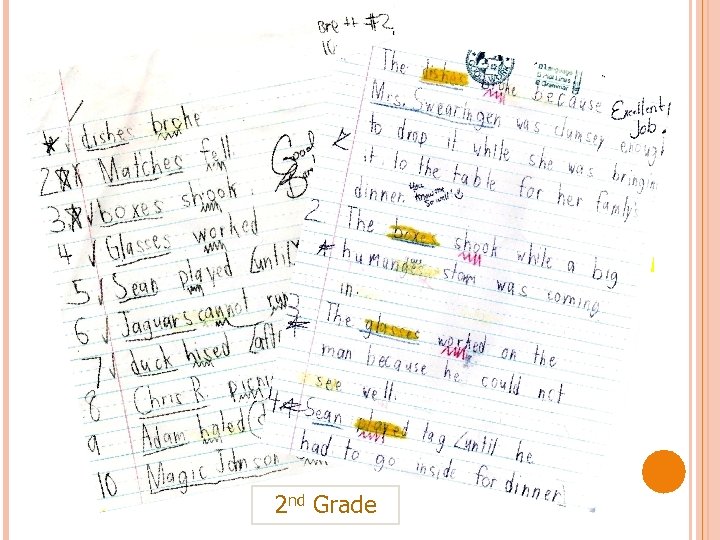 #2
1 dishes broke
2 Matches fell
3 boxes shook
4 Glasses worked
5 Sean played until
6 Jaguars cannot run
7 duck hised
8 Chris R.
9 Adam haled
10 Magic Johnson
Good
The dishes broke because
Mrs. Swearingen was clumsey enough
to drop it while she was bringin
it to the table for her family
dinner.
Excellent
Job.
2 The boxes shook while a big
stom was coming
in.
The glasses worked on the
man because he could not
see well.
4 Sean played tag until he
had to go inside for dinner
2nd Grade